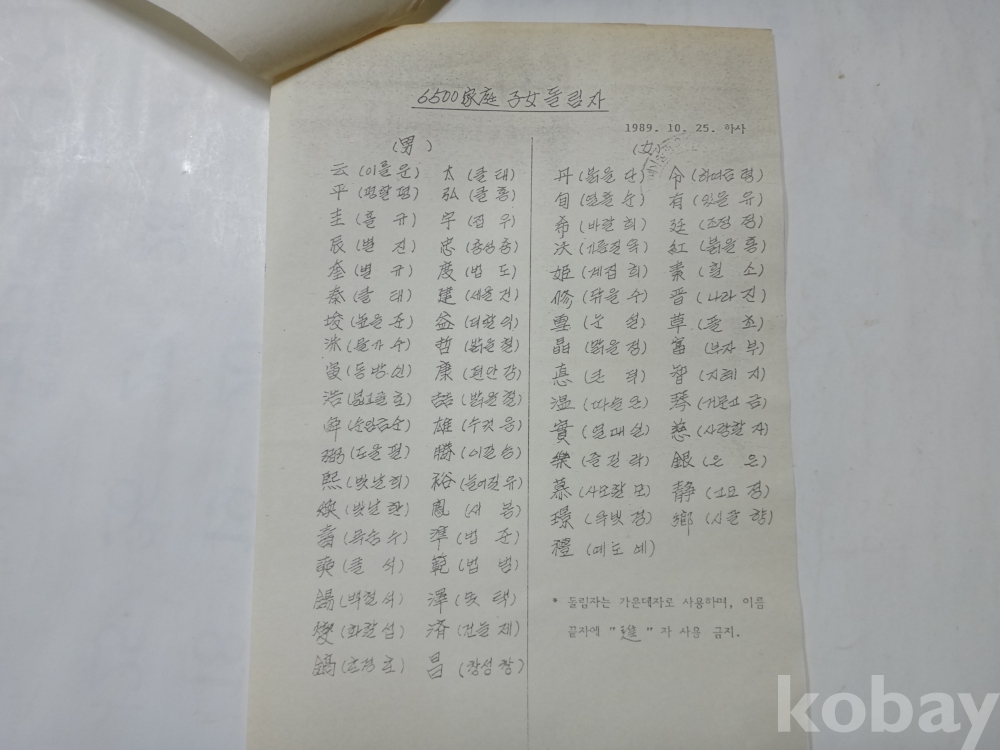 6500家庭 子女돌림자
1989. 10. 25. 하사
(男) (女)
云(이를 운) 太(클 태) 丹(붉을 단) 令(하여금 령)
平(평할 평) 弘(클 홍) 旬(열흘 순) 有(있을 유)
圭(홀 규) 宇(집 우) 希(바랄 희) 廷(조정 정)
辰(별 진) 忠(충성 충) 紅(붉을 홍)
奎(별 규) 度(법 도) 姬(계집 희) 素(흴 소)
泰(클 태) 建(세울 건) 修(닦을 수) 晋(나라 진)
埈(높을 준) 益(더할 익) 雪(눈 설) 草(풀 초)
洙(물가 수) 哲(밝을 철) 晶(밝을 정) 富(부자 부)
(동방 신) 康(편안 강) 悳(큰 덕) 智(지혜 지)
浩(넓을 호) 喆(밝을 철) 溫(따뜻 온) 琴(거문고 금)
雄(수컷 웅) 實(열매 실) 慈(사랑할 자)
弼(도울 필) 勝(이길 승) 樂(즐길 락) 銀(은 은)
熙(빛날 희) 裕(늘어질 유) 慕(사모할 모) 靜(고요 정)
煥(빛날 환) 鳳(새 봉) 璟(옥빛 경) 鄕(시골 향)
壽(목숨 수) 準(법 준) 禮(예도 예)
奭(클 석) 範(법 범)
錫(석) 澤(못 택) * 돌림자는 가운데자로 사용하며, 이름
燮(화할 섭) 済(건늘 제) 끝자에 " " 자 사용 금지.
鎬(호경 호) 昌(창성 창)
kobay